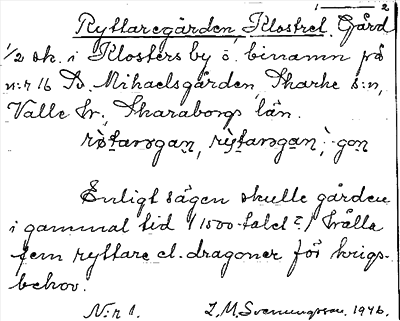 1 2
Ryttaregården, Klostret. Gård
1/2 sk. i Klosters by o. binamn på
n:r 16 So. Mihaelsgården, Skarke s:n,
Valle hr., Skaraborgs län.
Enligt sägen skulle gården
i gammal tid (1500-talet?) hålla
fem ryttare el. dragoner för krigs-
behov.
N:r 1. L.M. Svenungsson. 1946.